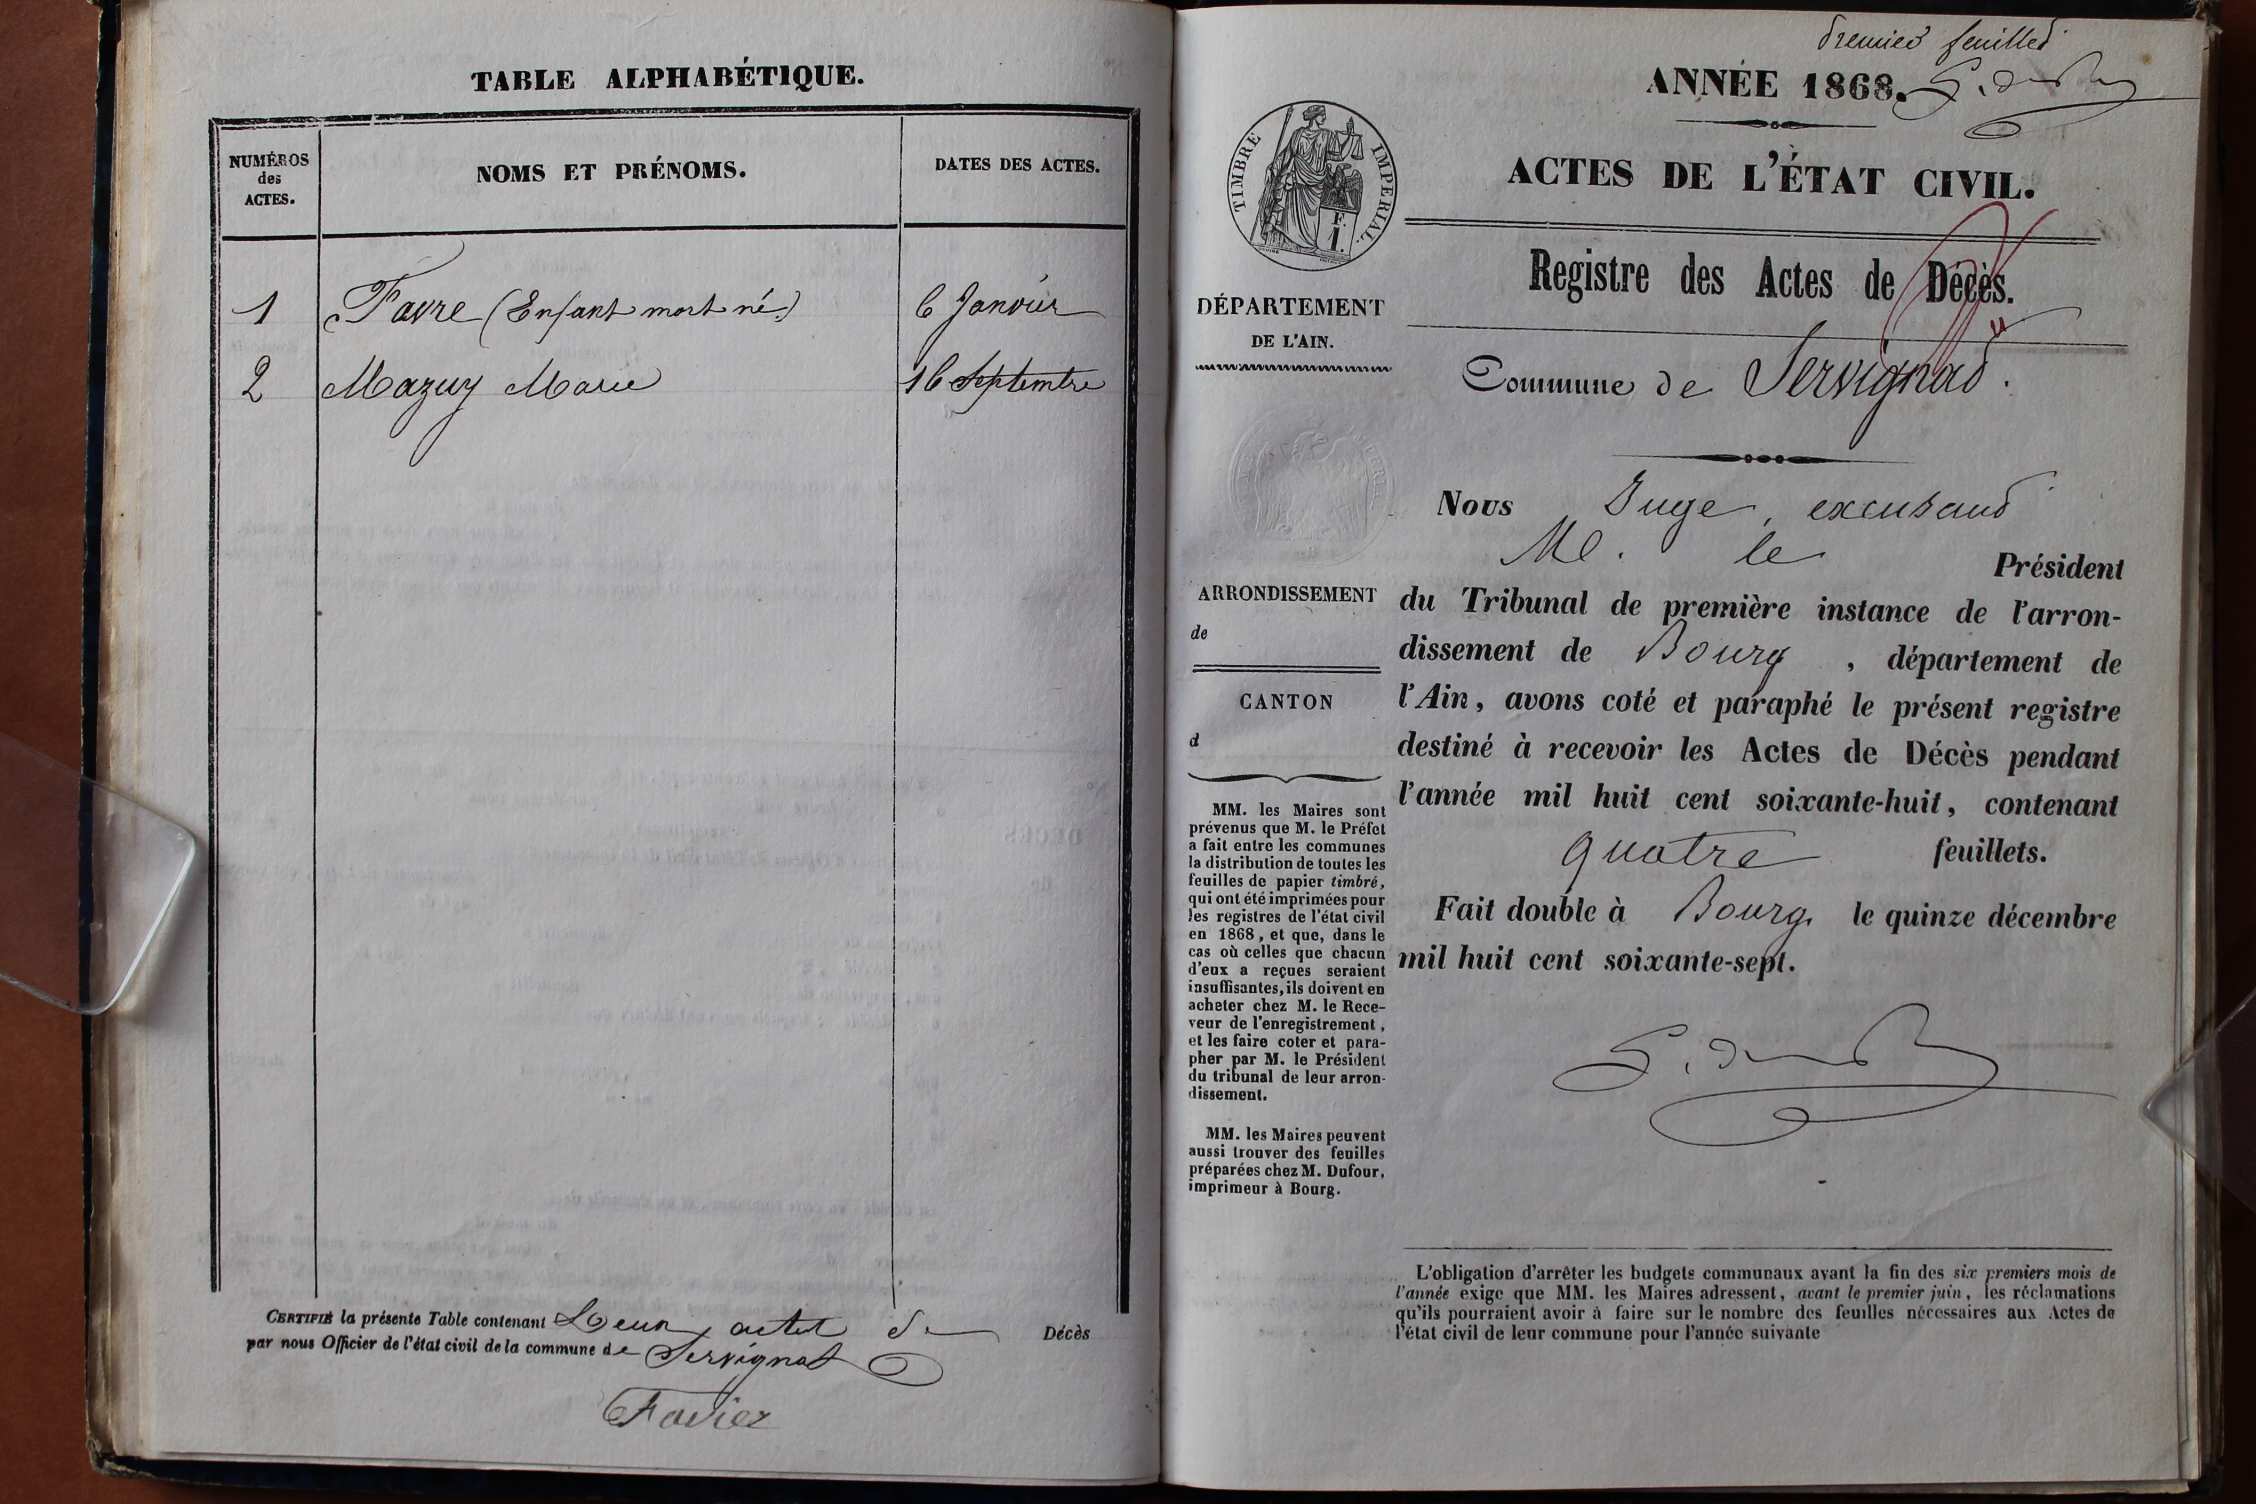 TABLE ALPHABÉTIQUE.
NUMÉROS
des
ACTES.
NOMS ET PRÉNOMS.
DATES DES ACTES.
1 Favre (Enfant mort né) 6 Janvier
2 Mazuy Marie 16 Septembre
CERTIFIÉ la présente Table contenant Deux actes de Décès
par nous Officier de l'état civil de la commune de Servignat
Favier
premier feuillet
ANNÉE 1868.
TIMBRE IMPERIAL.
F.
1.
ACTES DE L'ÉTAT CIVIL.
Registre des Actes de Décès.
DÉPARTEMENT
DE L'AIN.
Commune de Servignat.
Nous Juge, excusant
M. le
Président
ARRONDISSEMENT
de
CANTON
d
du Tribunal de première instance de l'arron-
dissement de Bourg, département de
l'Ain, avons coté et paraphé le présent registre
destiné à recevoir les Actes de Décès pendant
l'année mil huit cent soixante-huit, contenant
quatre feuillets.
Fait double à Bourg le quinze décembre
mil huit cent soixante-sept.
MM. les Maires sont
prévenus que M. le Préfet
a fait entre les communes
la distribution de toutes les
feuilles de papier timbré,
qui ont été imprimées pour
les registres de l'état civil
en 1868, et que, dans le
cas où celles que chacun
d'eux a reçues seraient
insuffisantes, ils doivent en
acheter chez M. le Rece-
veur de l'enregistrement,
et les faire coter et para-
pher par M. le Président
du tribunal de leur arron-
dissement.
MM. les Maires peuvent
aussi trouver des feuilles
préparées chez M. Dufour,
imprimeur à Bourg.
L'obligation d'arrêter les budgets communaux avant la fin des six premiers mois de
l'année exige que MM. les Maires adressent, avant le premier juin, les réclamations
qu'ils pourraient avoir à faire sur le nombre des feuilles nécessaires aux Actes de
l'état civil de leur commune pour l'année suivante